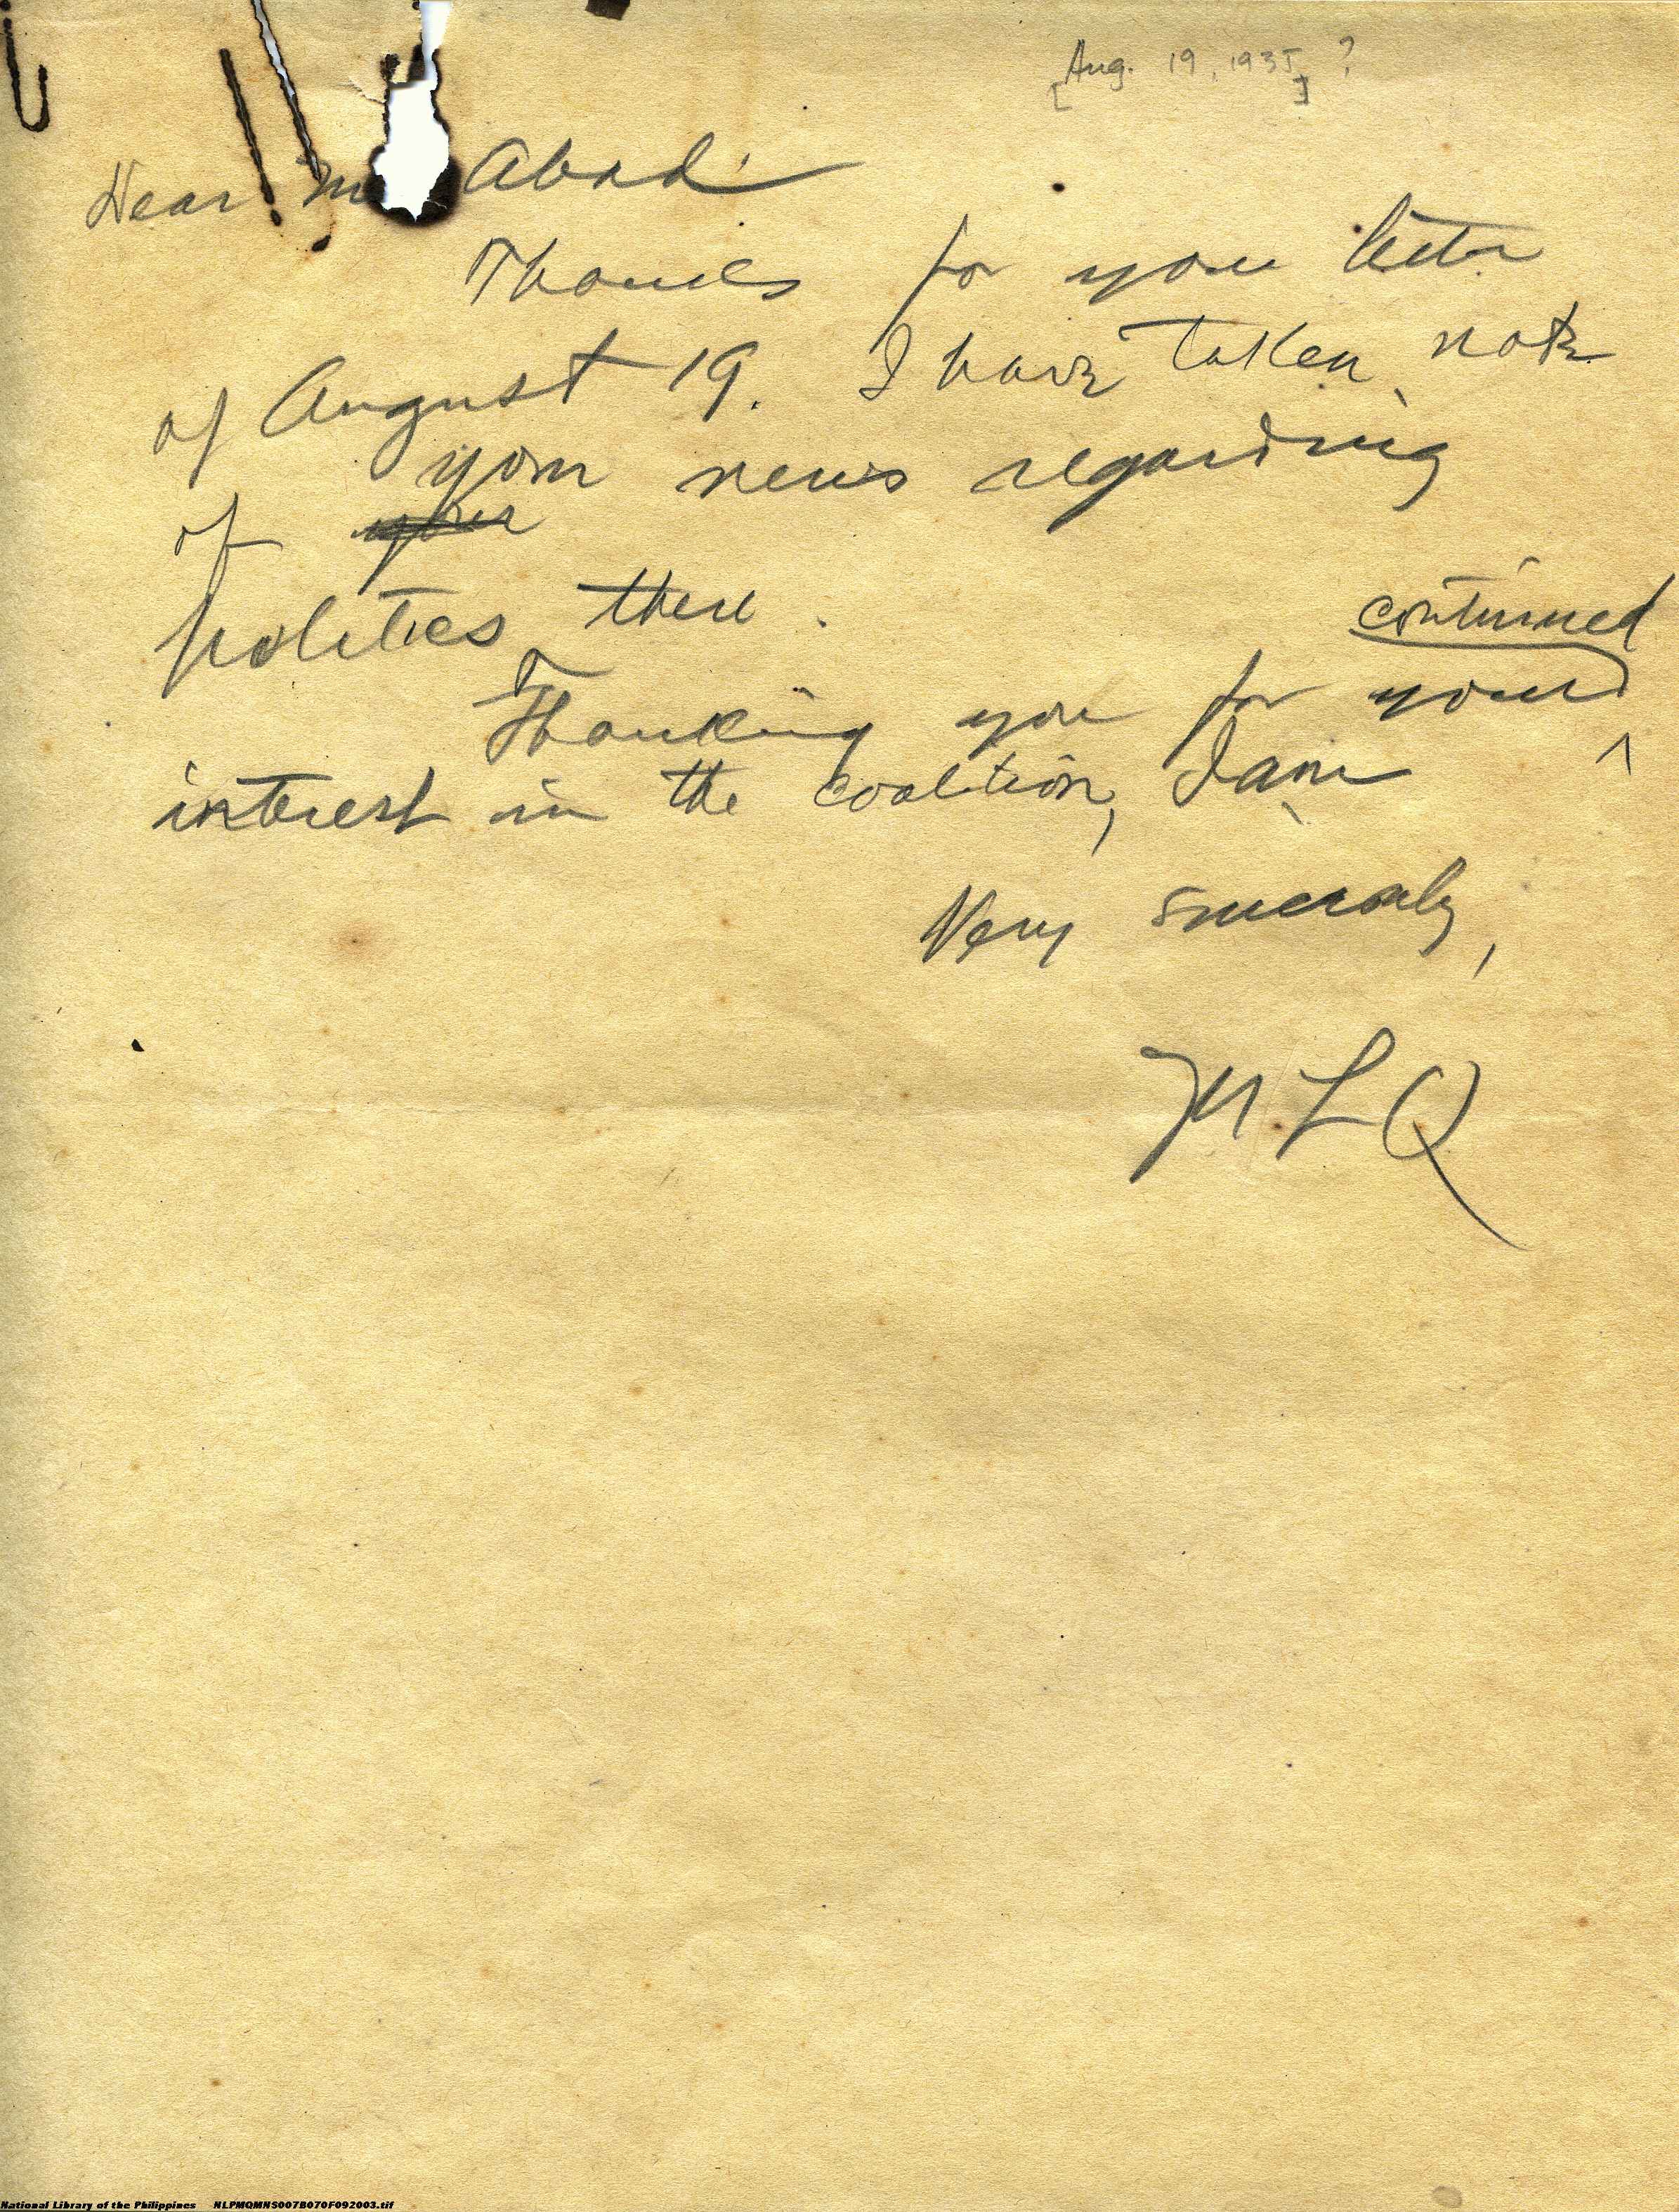 [Aug. 19, 1935] ?
Dear M Abad:
Thanks for your letter
of August 19. I have taken note
your news regarding
of your
politics there.
continued
Thanking you for your ^
interest in the coalition, I am
Very sincerely,
MLQ
National Library of the Philippines NLPMQMNS007B070F092003.tif